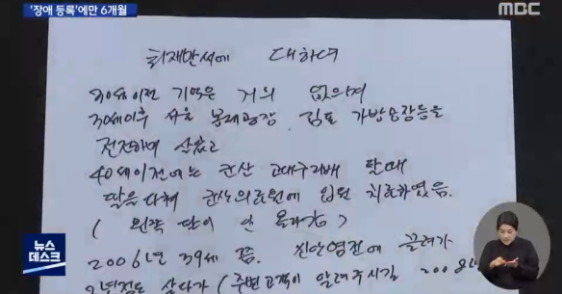 '장애 등록'에만 6개월
MBC
최재만씨에 대하여
20세이전 기억은 거의 없으며
30세이후 서울 봉제공장, 김포 가방공장등을
전전하며 살았고
40세이전에는 군산 고대구리배 탈때
팔을 다쳐 군산의료원에 입원 치료하였음.
( 왼쪽 팔이 안
2006년 39세 쯤. 진안영전에 끌려가
2년정도 살다가 ( 주변고객이 알려주시길 2008년
뉴스
데스크